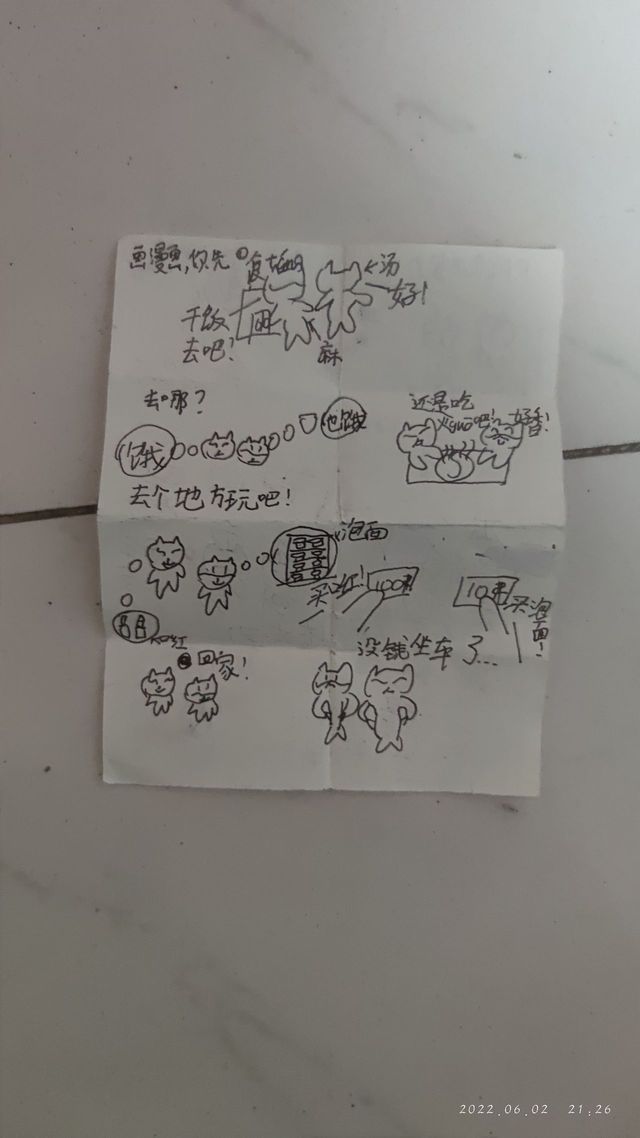 画漫画,你先
汤
好!
干饭
去吧?
麻
去哪?
饿
也饿
还是吃
火锅吧!
好香!
去个地方玩吧!
泡面
买口红!
100元
10元
买泡面!
口红
回家!
没钱坐车了...
2022.06.02 21:26